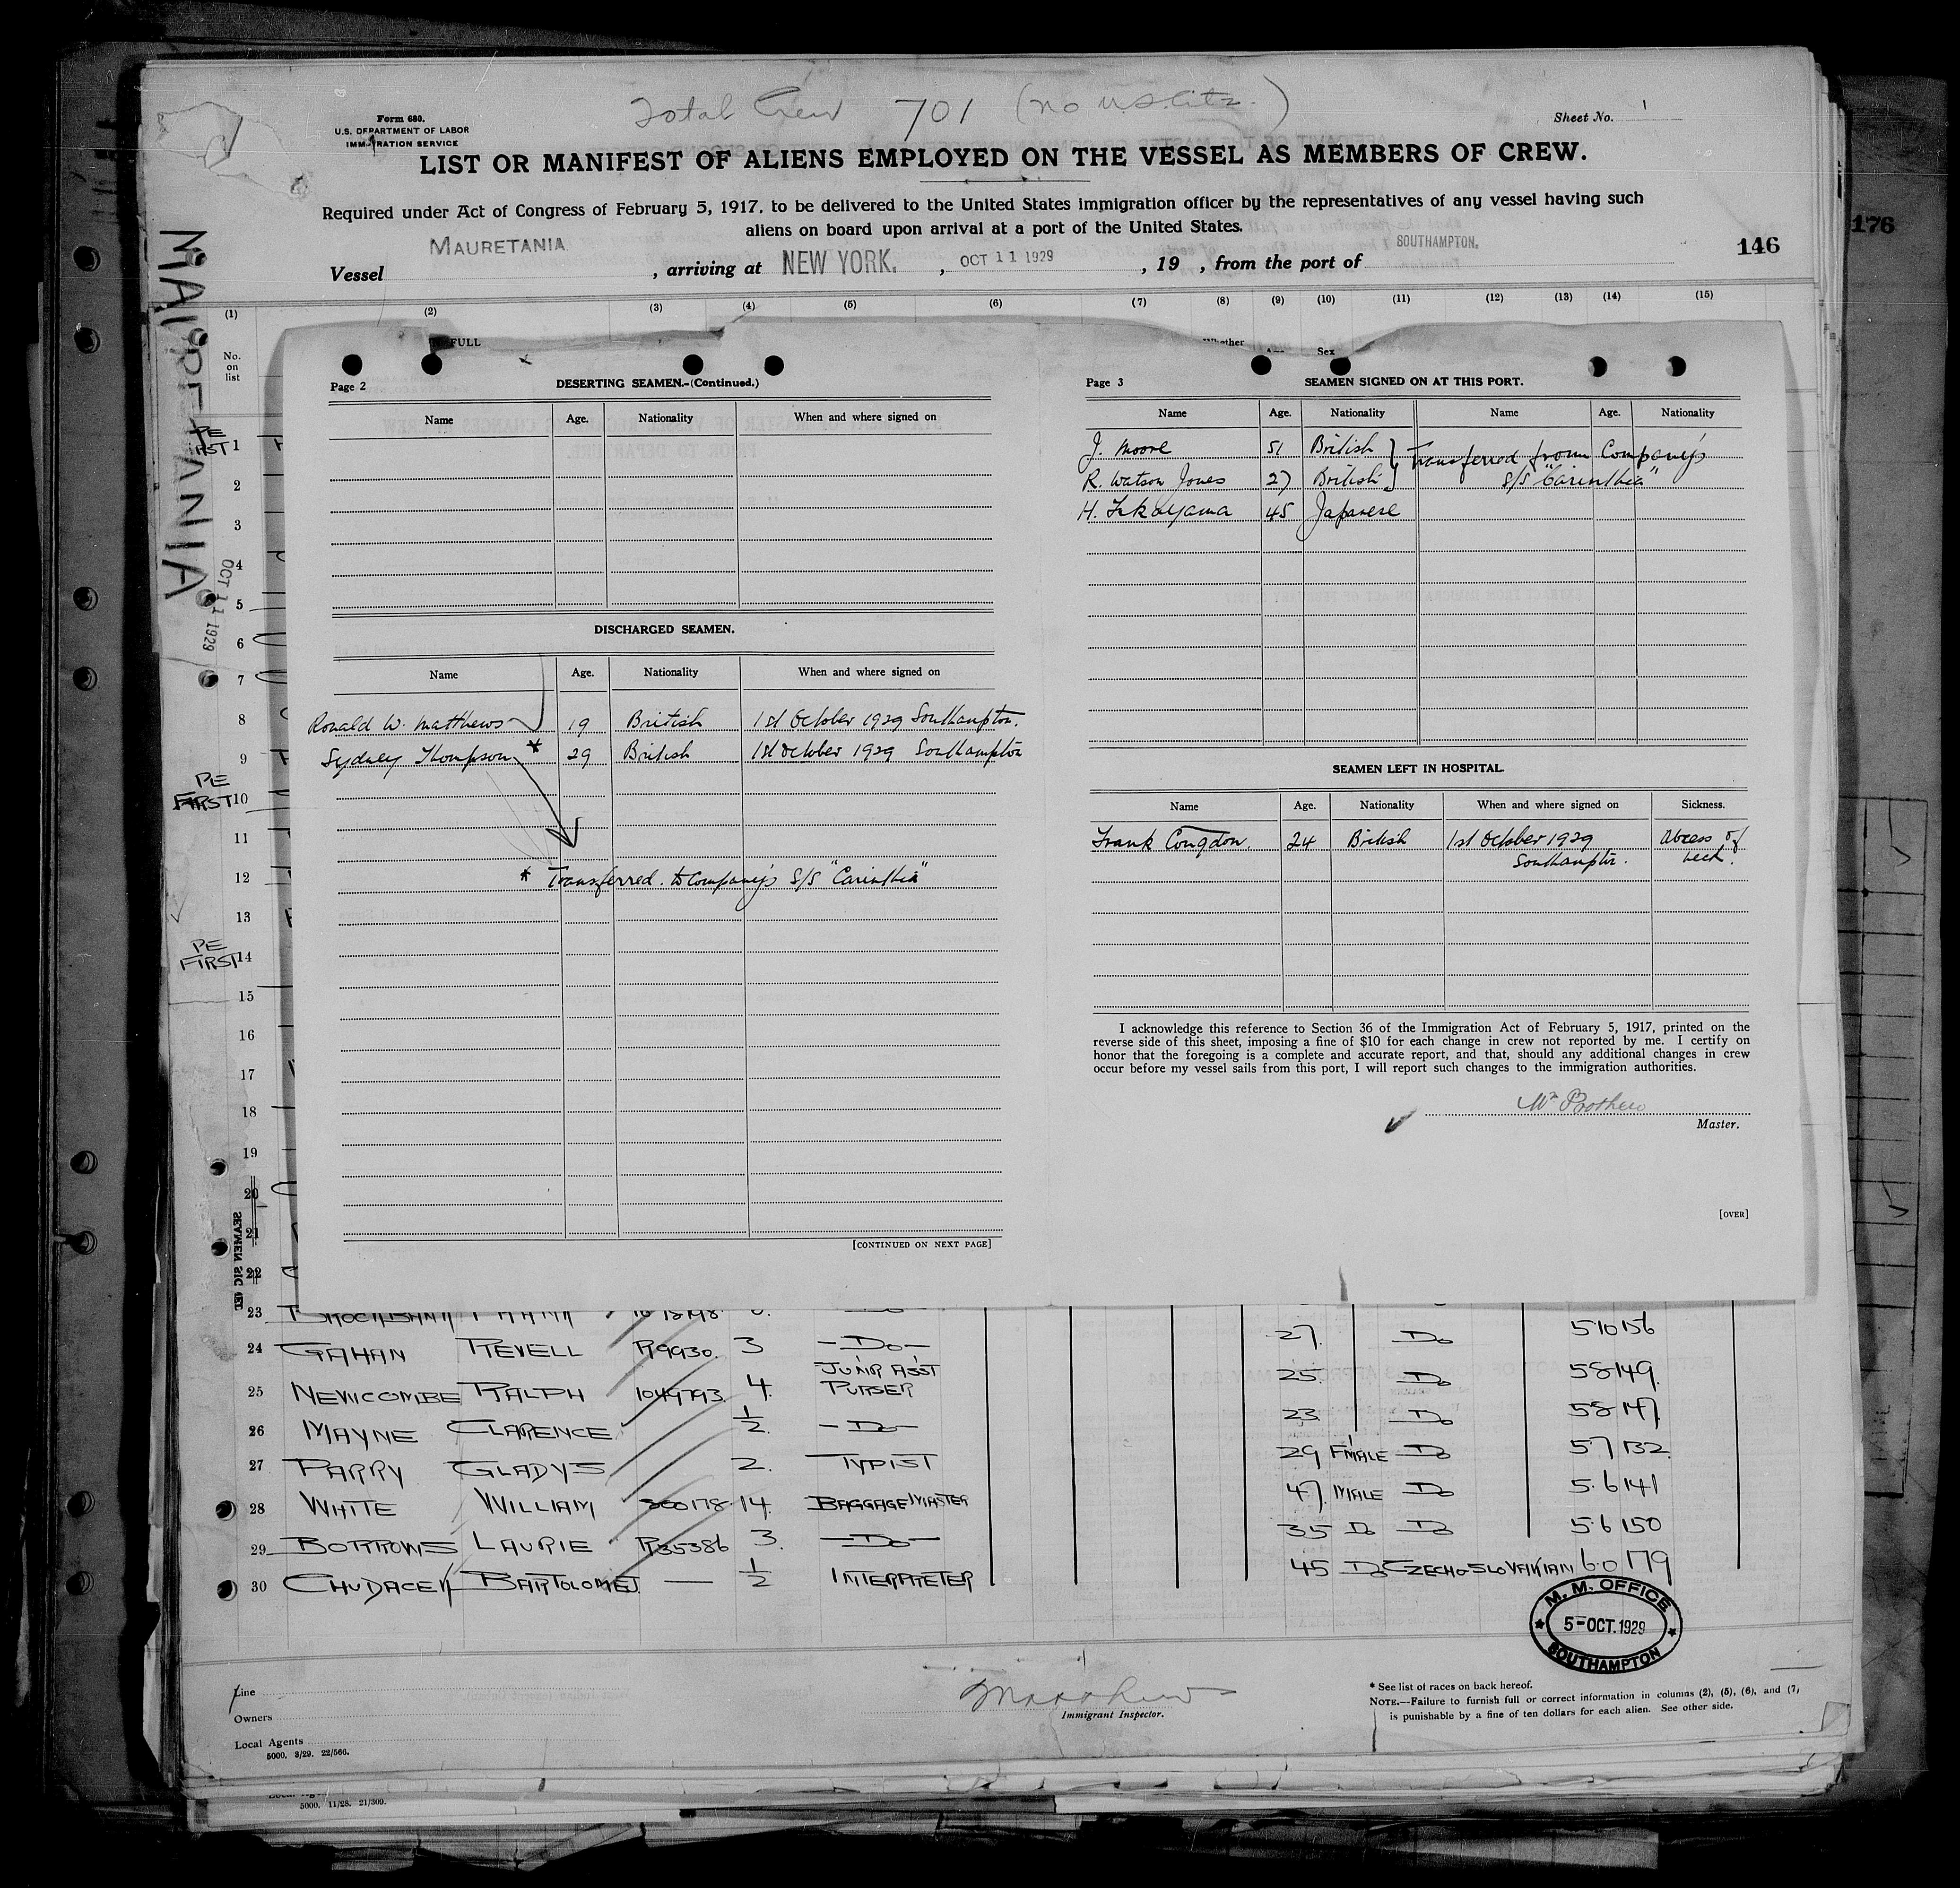 Total Crew 701 (no U.S. citz.)
Form 680.
U.S. DEPARTMENT OF LABOR
IMMIGRATION SERVICE
Sheet No. 1
LIST OR MANIFEST OF ALIENS EMPLOYED ON THE VESSEL AS MEMBERS OF CREW.
Required under Act of Congress of February 5, 1917, to be delivered to the United States immigration officer by the representatives of any vessel having such
aliens on board upon arrival at a port of the United States.
Vessel MAURETANIA, arriving at NEW YORK., OCT 11 1929, 19 , from the port of SOUTHAMPTON.
146
176
MAURETANIA
OCT 11 1929
(1) (2) (3) (4) (5) (6) (7) (8) (9) (10) (11) (12) (13) (14) (15)
No.
on
list
FULL
Whether
Sex
Page 2
DESERTING SEAMEN.-(Continued.)
Name Age. Nationality When and where signed on
DISCHARGED SEAMEN.
Name Age. Nationality When and where signed on
Ronald W. Matthews 19 British 1st October 1929 Southampton.
Sydney Thompson * 29 British 1st October 1929 Southampton
* Transferred to Company's S/S "Carinthia"
[CONTINUED ON NEXT PAGE]
Page 3
SEAMEN SIGNED ON AT THIS PORT.
Name Age. Nationality Name Age. Nationality
J. Moore 51 British } Transferred from Company's
R. Watson Jones 27 British } S/S "Carinthia"
H. Takayama 45 Japanese
SEAMEN LEFT IN HOSPITAL.
Name Age. Nationality When and where signed on Sickness.
Frank Congdon. 24 British 1st October 1929 Abcess of
Southampton.
I acknowledge this reference to Section 36 of the Immigration Act of February 5, 1917, printed on the
reverse side of this sheet, imposing a fine of $10 for each change in crew not reported by me. I certify on
honor that the foregoing is a complete and accurate report, and that, should any additional changes in crew
occur before my vessel sails from this port, I will report such changes to the immigration authorities.
Master.
[OVER]
PE
RST 1
2
3
4
5
6
7
8
9
PE
FIRST 10
11
12
13
PE
FIRST 14
15
16
17
18
19
20
21
22
23
24 GAHAN REVELL R9930. 3 -Do- 27. Do 510156
25 NEWCOMBE RALPH 1049793 4. JUNR ASST PURSER 25 Do 58149.
26 MAYNE CLARENCE 1/2. -Do- 23 Do 58147.
27 PARRY GLADYS 2. TYPIST 29 FMALE Do 57132.
28 WHITE WILLIAM 300178 14. BAGGAGE MASTER 47. MALE Do 56141
29 BORROWS LAURIE R35386 3. -Do- 35 Do Do 56150
30 CHUDACEK BARTOLOMEJ. — 1/2 INTERPRETER 45 Do CZECHO-SLOVAKIAN 60179
M. M. OFFICE
5-OCT.1929
SOUTHAMPTON
Line
Owners
Local Agents
5000. 3/29. 22/566.
Immigrant Inspector.
* See list of races on back hereof.
NOTE.—Failure to furnish full or correct information in columns (2), (5), (6), and (7),
is punishable by a fine of ten dollars for each alien. See other side.
5000. 11/28. 21/309.